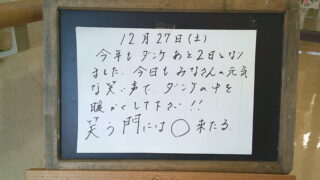 12月27日(土)
今年もダンケあと2日となり
ました。今日もみなさんの元気
な笑い声で、ダンケの中を
暖かくして下さい!!
笑う門には○来たる